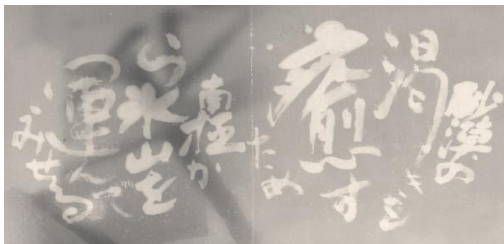 砂漠の
渇きを
癒す
ため
南極か
ら氷山を
運んで
みせる